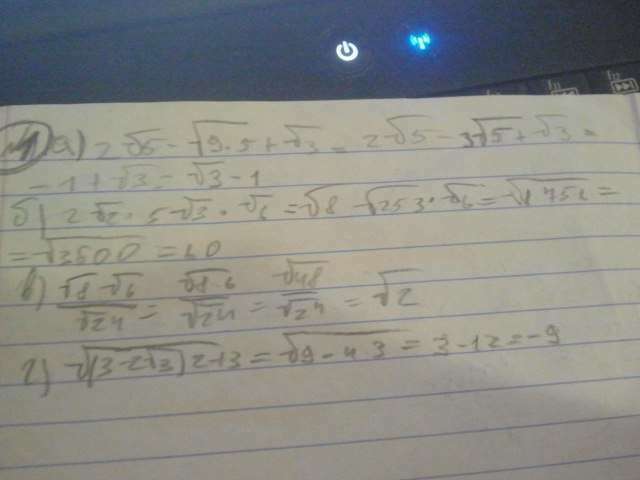 №1 а) 2√5 - √9·5 + √3 = 2√5 - 3√5 + √3 =
- 1 + √3 = √3 - 1
б) 2√2 · 5√3 · √6 = √8 · √25 3 · √6 =
= √3600 = 60
в) √8·√6 / √24 = √8·6 / √24 = √48 / √24 = √2
г) √(3-2√3)2 + 3 = √9 - 4·3 = 3 - 12 = -9